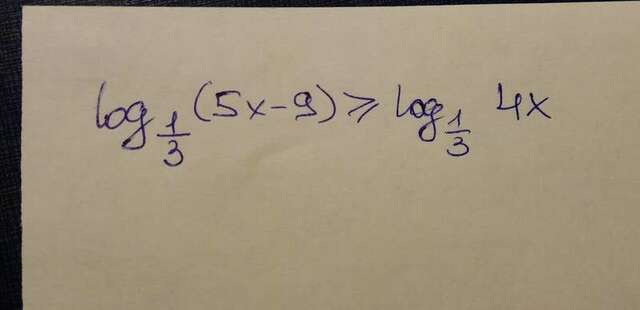 log_{1/3} (5x-9) ⩾ log_{1/3} 4x